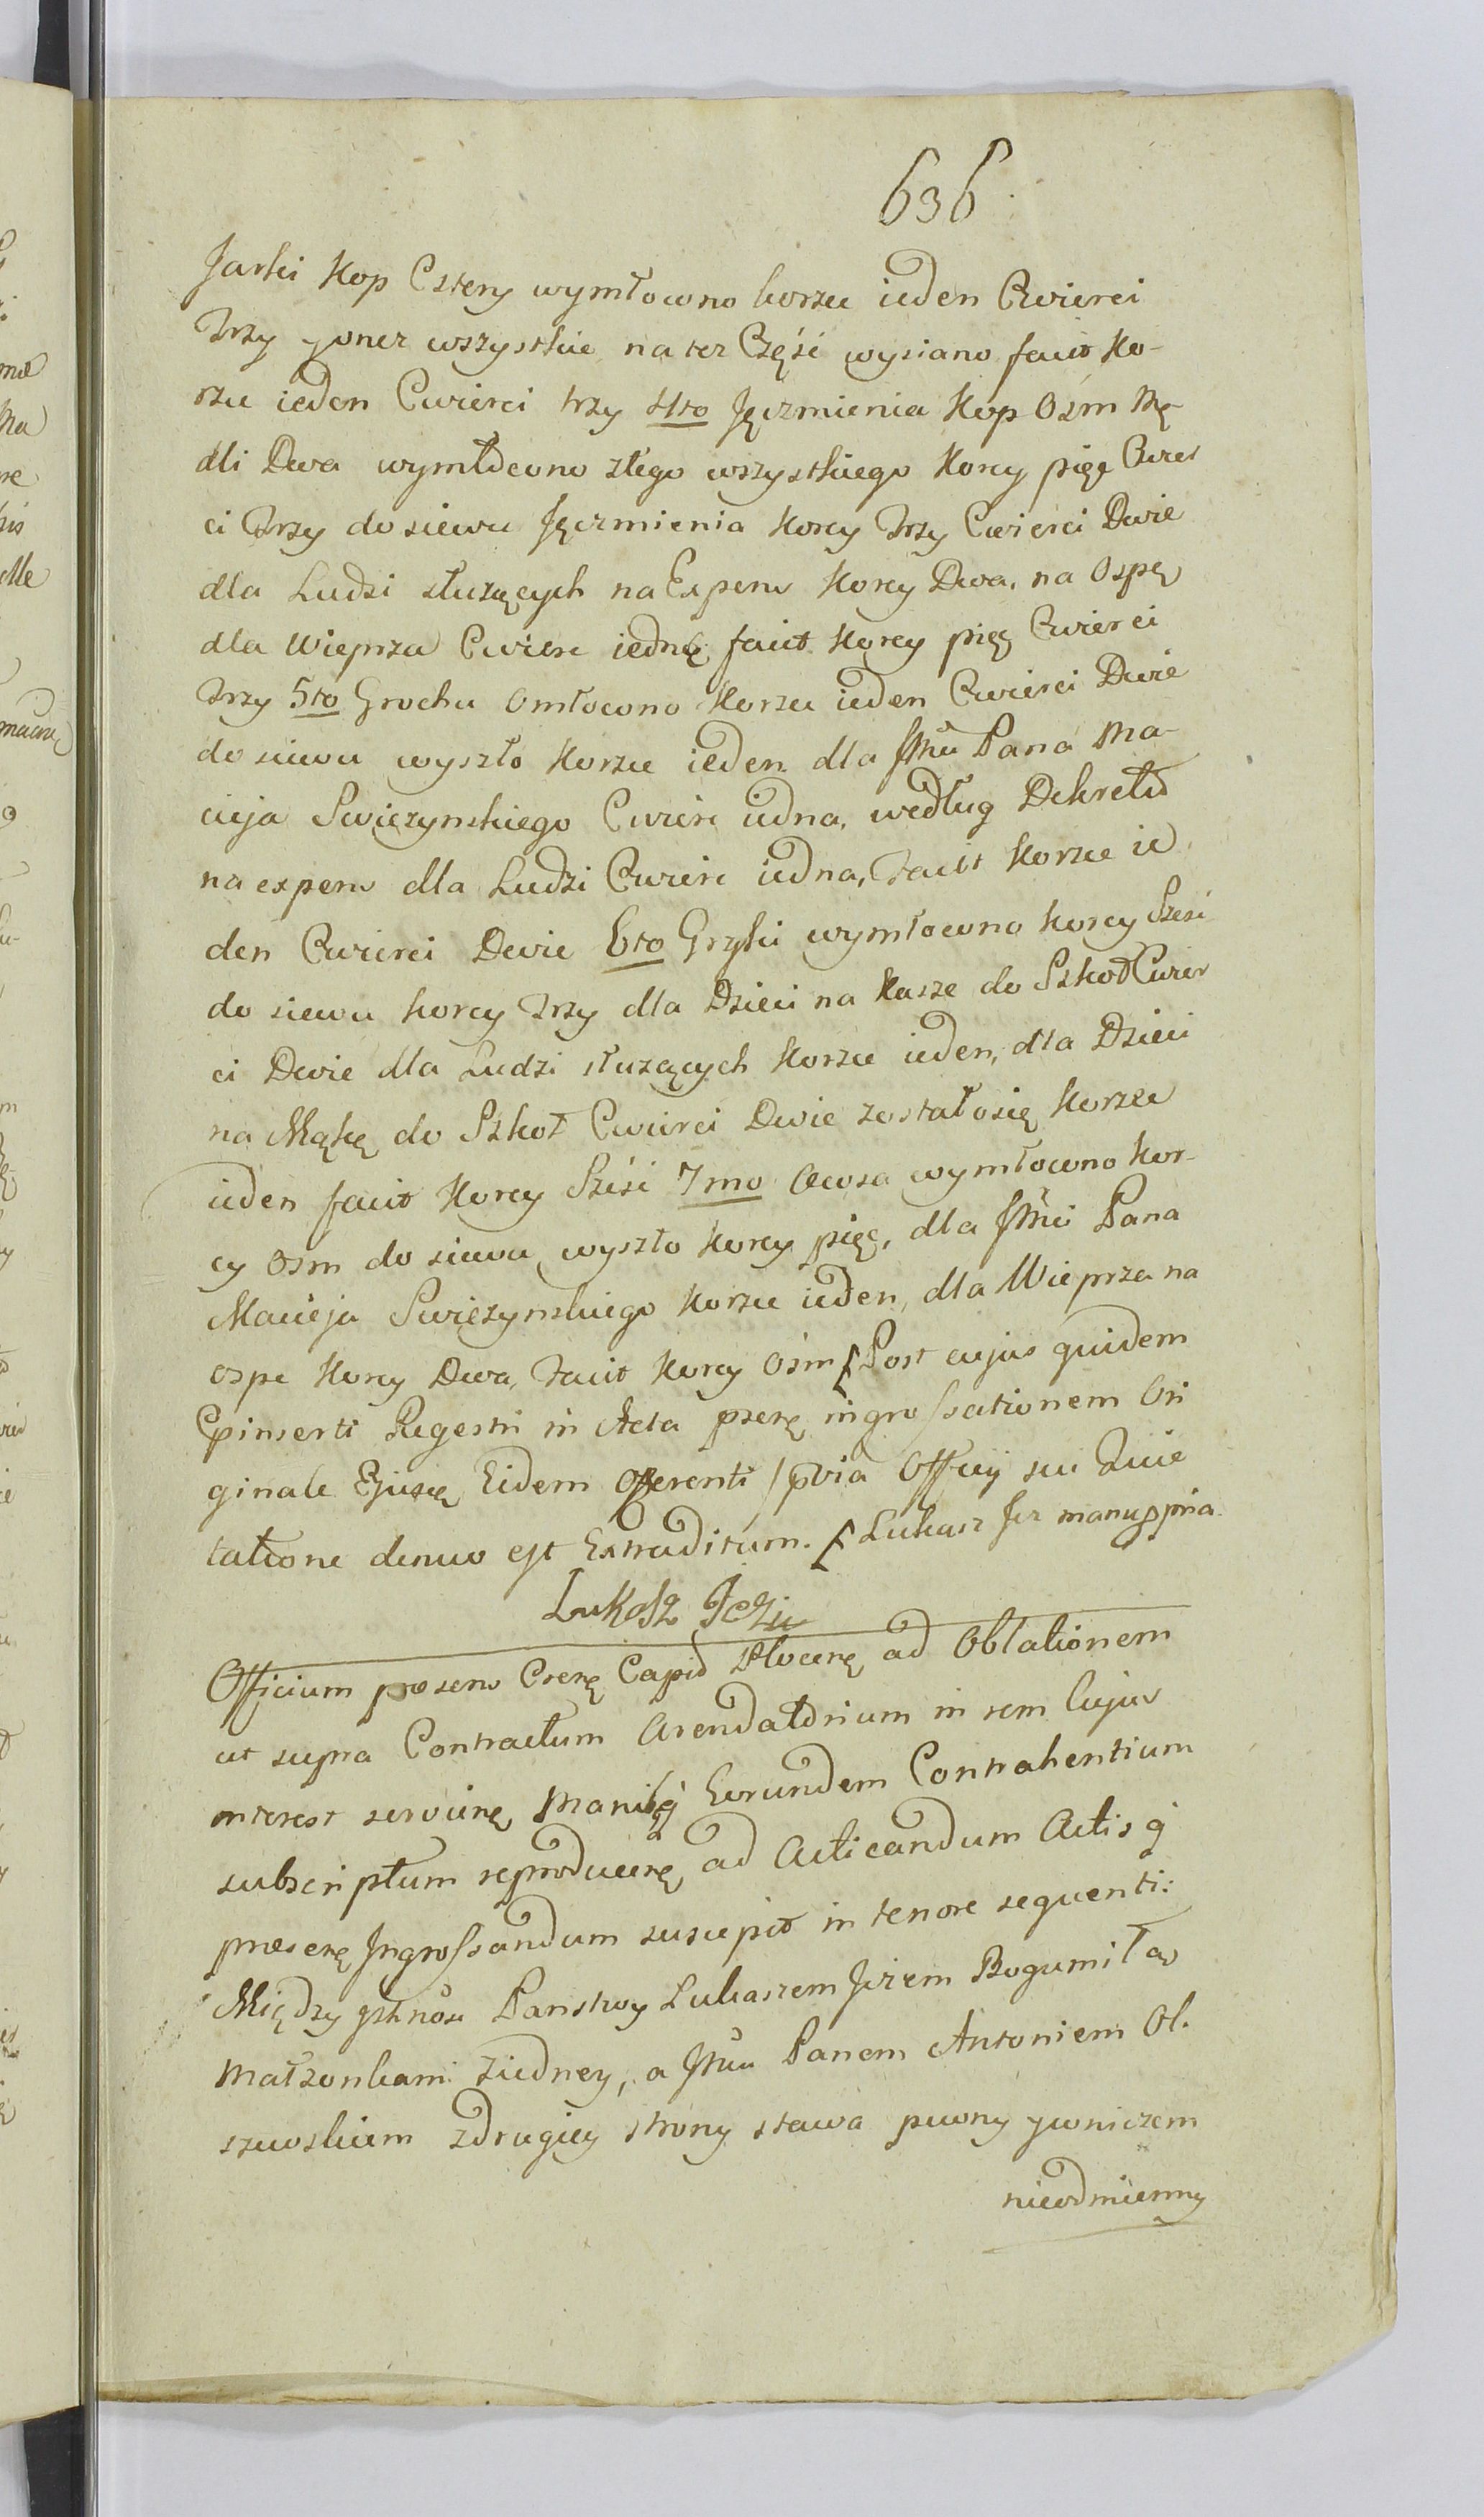 636
Jarki Kop Cztery wymłocono korzec ieden Cwierci
Trzy yoncz wszystkie na tez Częsć wysiano facit Ko-
rzec ieden Cwierci trzy 4to Jęczmienia Kop Osm Mę-
dli Dwa wymłocono złego wszystkiego Korcy pięc Cwier
ci Trzy do siewu Jęczmienia Korcy Trzy Cwierci Dwie
dla Ludzi słuzących na Expens Korcy Dwa, na Ospę
dla Wieprza Cwierc iedną facit Korcy pięc Cwierci
Trzy 5to Grochu Omłocono Korzec ieden Cwierci Dwie
do siewu wyszło Korzec ieden dla JMci Pana Ma-
cieja Swiezynskiego Cwierc iedna, według Dekretu
na expens dla Ludzi Cwierc iedna, facit Korzec ie
den Cwierci Dwie 6to Gryki wymłocono Korcy Szesc
do siewu korcy Trzy dla Dzieci na Kasze do Szkoł Cwier
ci Dwie dla Ludzi słuzących Korzec ieden, dla Dzieci
na Mąkę do Szkoł Cwierci Dwie zostało się Korzec
ieden facit Korcy Szesc 7mo Owsa wymłocono Kor-
cy Osm do siewu wyszło Korcy pięc, dla JMci Pana
Macieja Swiezynskiego Korzec ieden, dla Wieprza na
ospe Korcy Dwa, facit Korcy Osm Post cujus quidem
Regestri in Acta ingrossationem Ori
ginale Eidem Offerenti Officij sui Quie
tatione denuo est Extraditum. Lukasz Jez manu ppria
Lukasz Jeż
Officium praesens Capit ad Oblationem
ut supra Contractum Arendatorium in rem Cujus
interest Eorundem Contrahentium
subscriptum ad Acticandum Actis q
Ingrossandum suscepit in tenore sequenti:
Między Panstwy Lukaszem Jeżem Bogumiłą
Małzonkami ziedney, a JMci Panem Antoniem Ol-
szewskiem zdrugiey strony stawa pewny ywniczem
nieodmienny